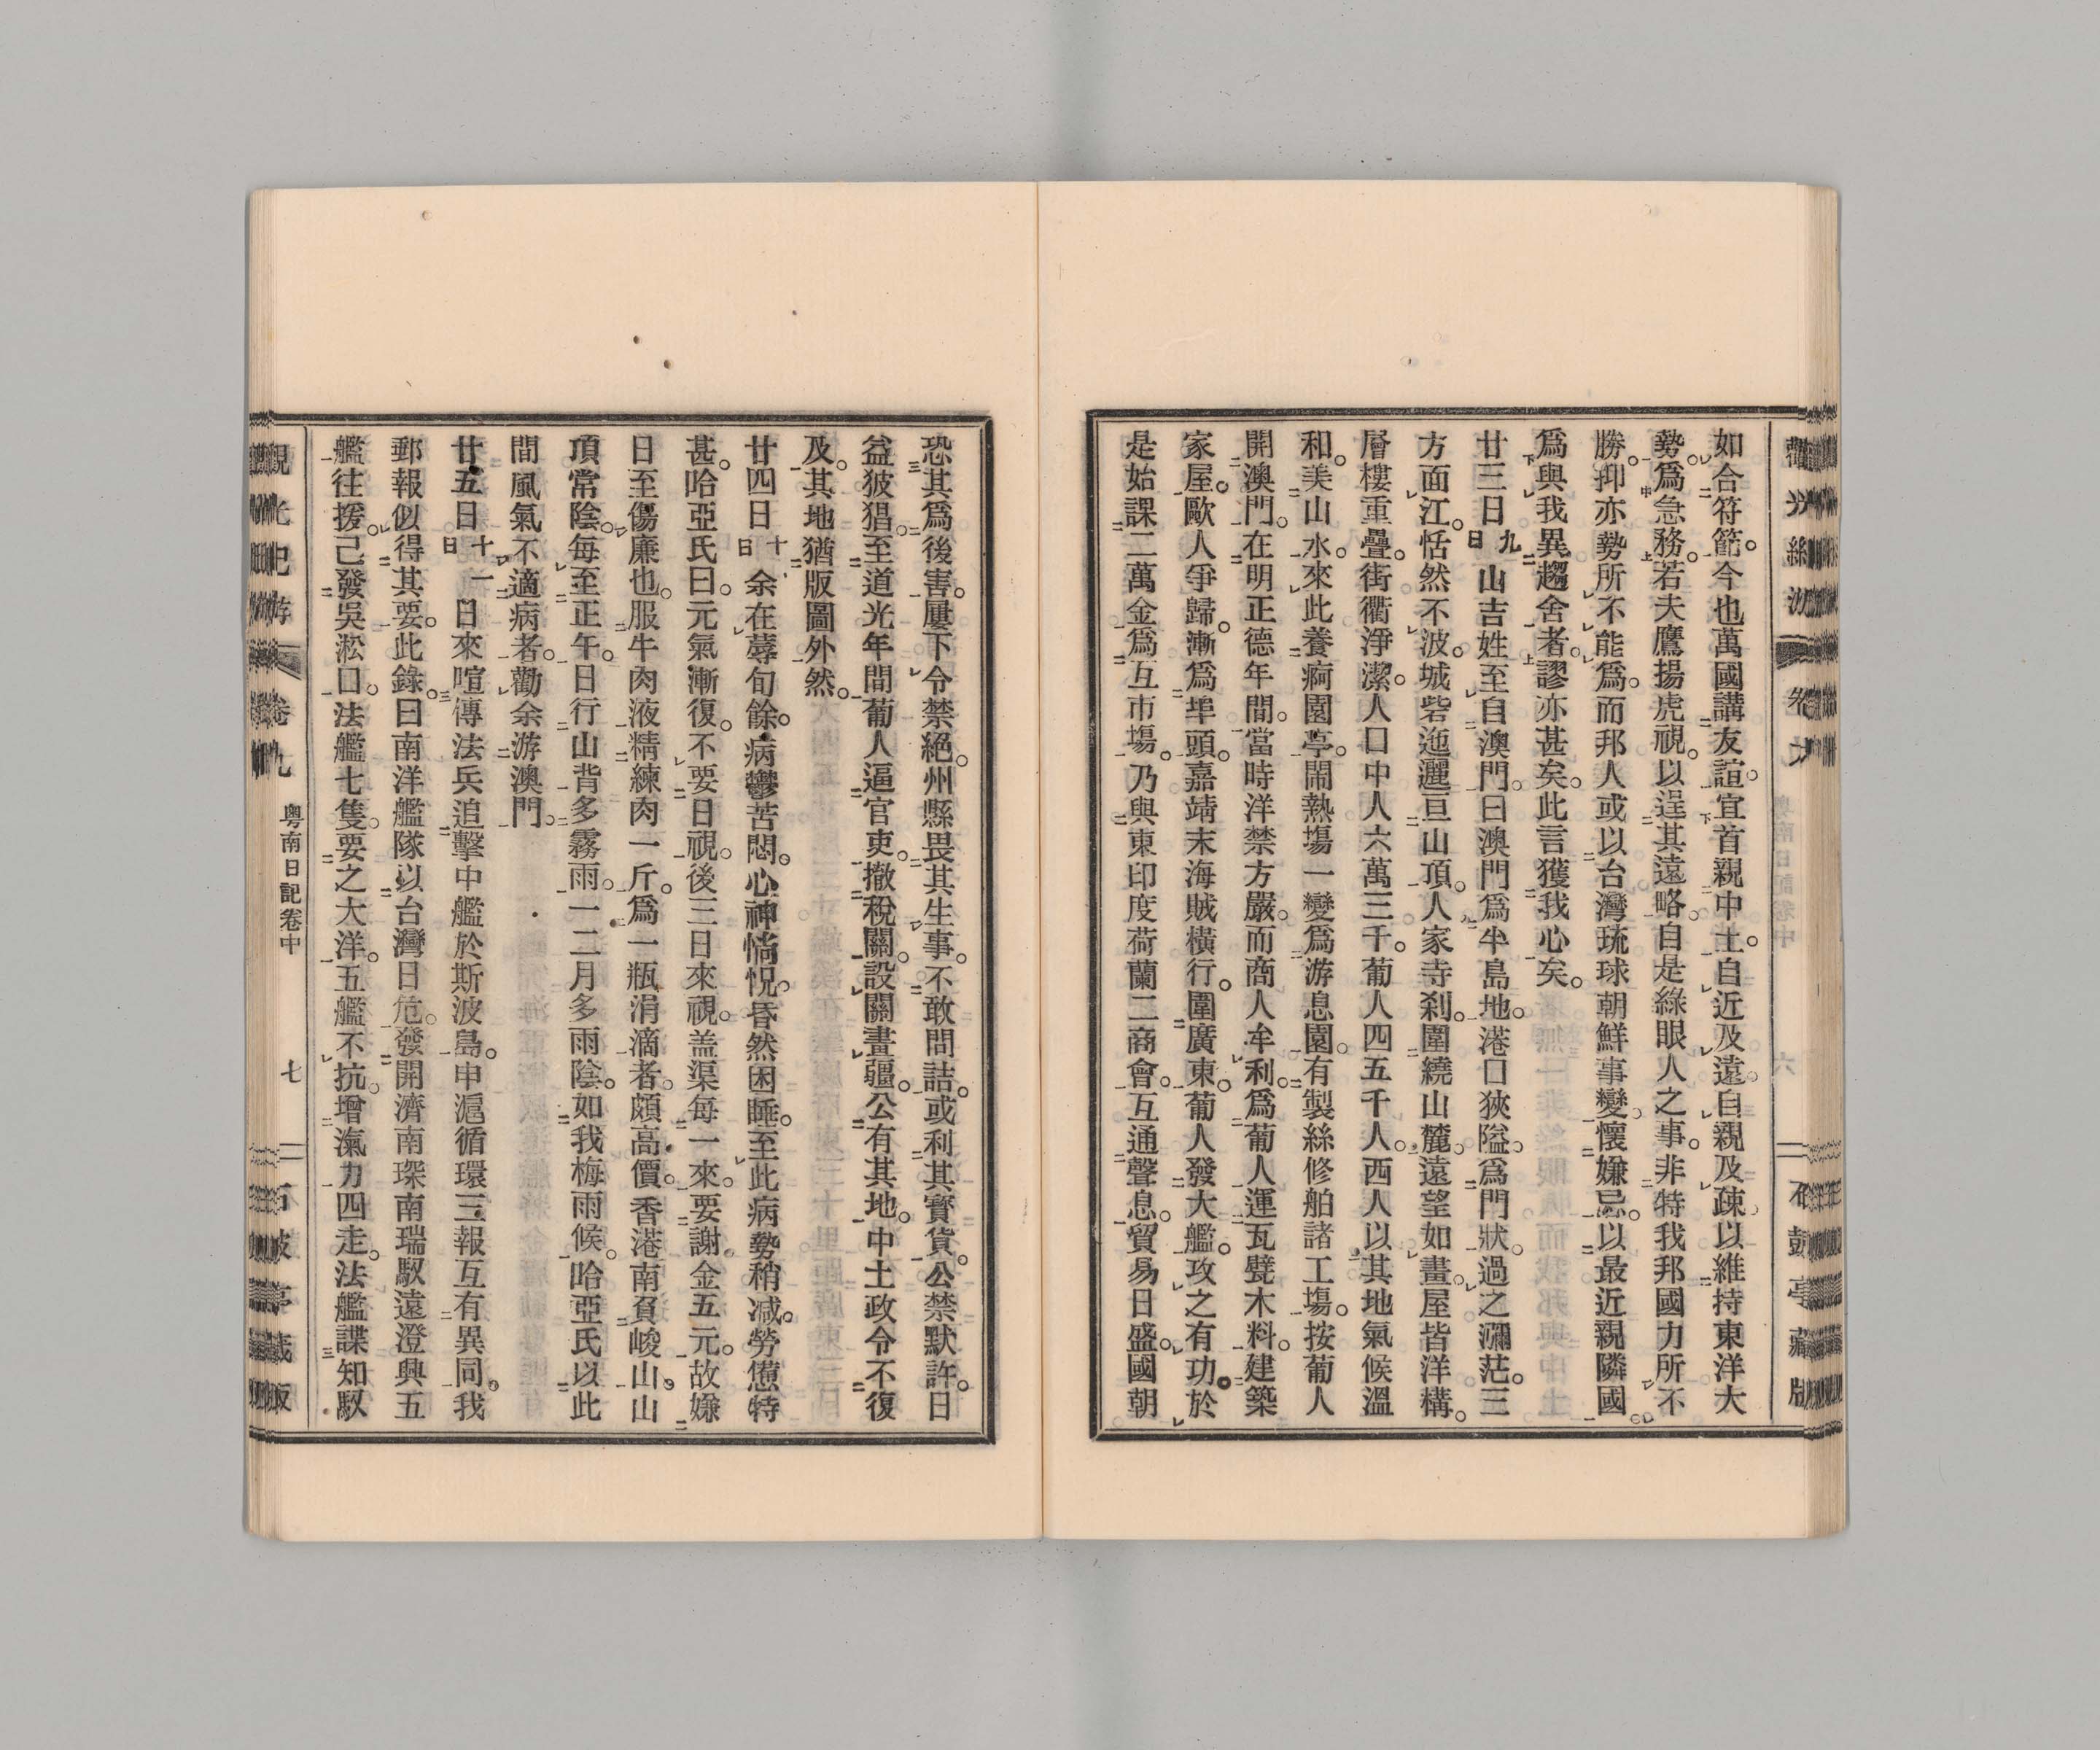 如合符節。今也萬國講友誼。宜首親中土。自近及遠。自親及疎。以維持東洋大
勢。爲急務。若夫鷹揚虎視。以逞其遠略。自是綠眼人之事。非特我邦國力所不
勝。抑亦勢所不能爲。而邦人或以台灣琉球朝鮮事變。懷嫌忌。以最近親隣國。
爲與我異趨舍者。謬亦甚矣。此言獲我心矣。
廿三日九日山吉姓至自澳門。曰澳門爲半島地。港口狹隘。爲門狀。過之瀰茫。三
方面江。恬然不波。城砦迤邐亘山頂。人家寺刹。圍繞山麓。遠望如畫。屋皆洋構。
層樓重疊。街衢淨潔。人口中人六萬三千。葡人四五千人。西人以其地氣候溫
和。美山水。來此養痾園亭。鬧熱塲一變爲游息園。有製絲修舶諸工塲。按葡人
開澳門。在明正德年間。當時洋禁方嚴。而商人牟利。爲葡人運瓦甓木料。建築
家屋。歐人爭歸。漸爲埠頭。嘉靖末海賊橫行。圍廣東。葡人發大艦。攻之有功。於
是始課二萬金。爲互市塲。乃與東印度荷蘭二商會。互通聲息。貿易日盛。國朝
恐其爲後害。屢下令禁絕。州縣畏其生事。不敢問詰。或利其寳貨。公禁默許。日
益狓猖。至道光年間葡人逼官吏。撤稅關。設關畫疆。公有其地。中土政令不復
及。其地猶版圖外然。
廿四日十日余在蓐旬餘。病鬱苦悶。心神惝怳。昏然困睡。至此病勢稍减。勞憊特
甚。哈亞氏曰。元氣漸復。不要日視。後三日來視。盖渠每一來。要謝金五元。故嫌
日至傷廉也。服牛肉液精練肉一斤。爲一瓶涓滴者。頗高價。香港南負峻山。山
頂常陰。每至正午。日行山背多霧雨。一二月多雨陰。如我梅雨候。哈亞氏以此
間風氣不適病者。勸余游澳門。
廿五日十一日日來喧傳法兵追擊中艦於斯波島。申滬循環三報互有異同。我
郵報似得其要。此錄。曰南洋艦隊以台灣日危。發開濟南琛南瑞馭遠澄興五
艦往援。己發吳淞口。法艦七隻。要之大洋。五艦不抗。增滊力四走。法艦諜知馭
觀光紀游 卷九 粵南日記卷中 七 石鼓亭藏版